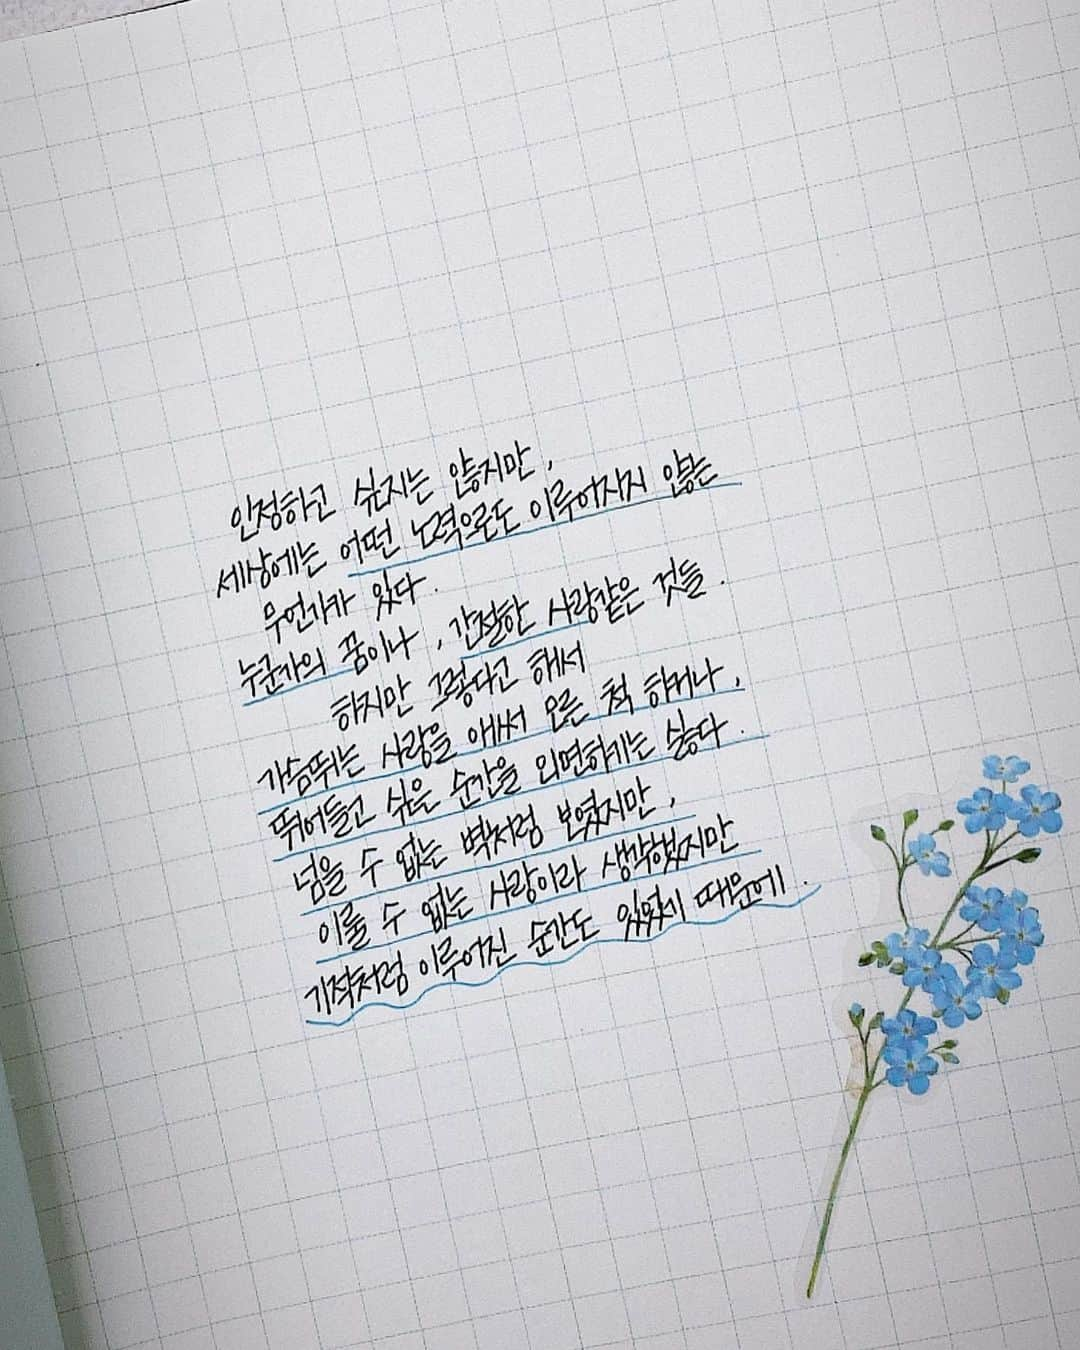 인정하고 싶지는 않지만,
세상에는 어떤 노력으로도 이루어지지 않는
무언가가 있다.
누군가의 꿈이나, 간절한 사랑같은 것들.
하지만 그렇다고 해서
가슴뛰는 사랑을 애써 모른 척 하거나,
뛰어들고 싶은 순간을 외면하기는 싫다.
넘을 수 없는 벽처럼 보였지만,
이룰 수 없는 사랑이라 생각했지만
기적처럼 이루어진 순간도 있었기 때문에.